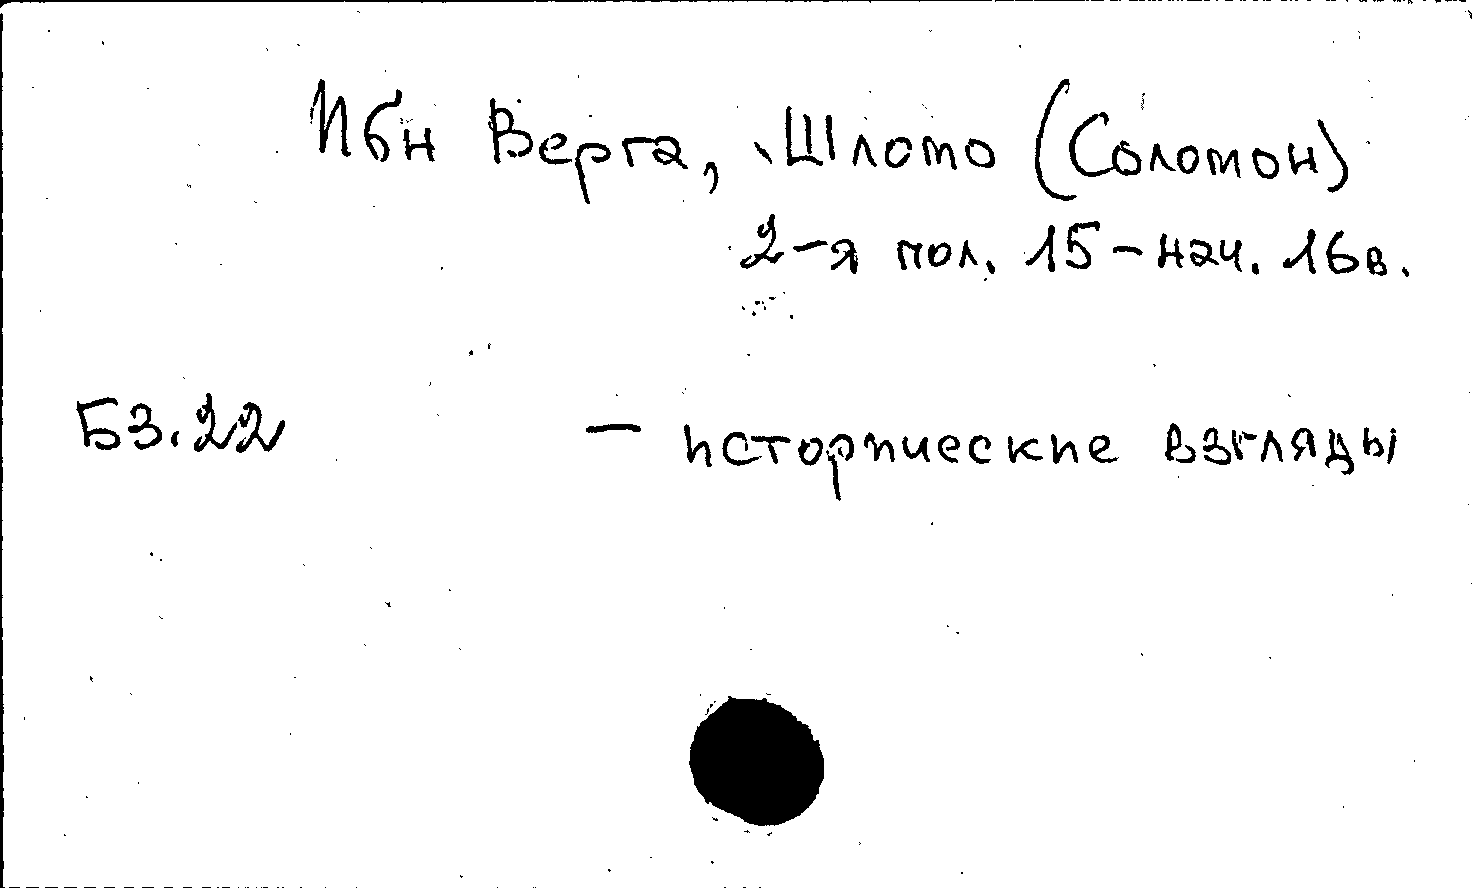 Ибн Верга, Шломо (Соломон)
2-я пол. 15 - нач. 16 в.
Б3.22 — исторические взгляды